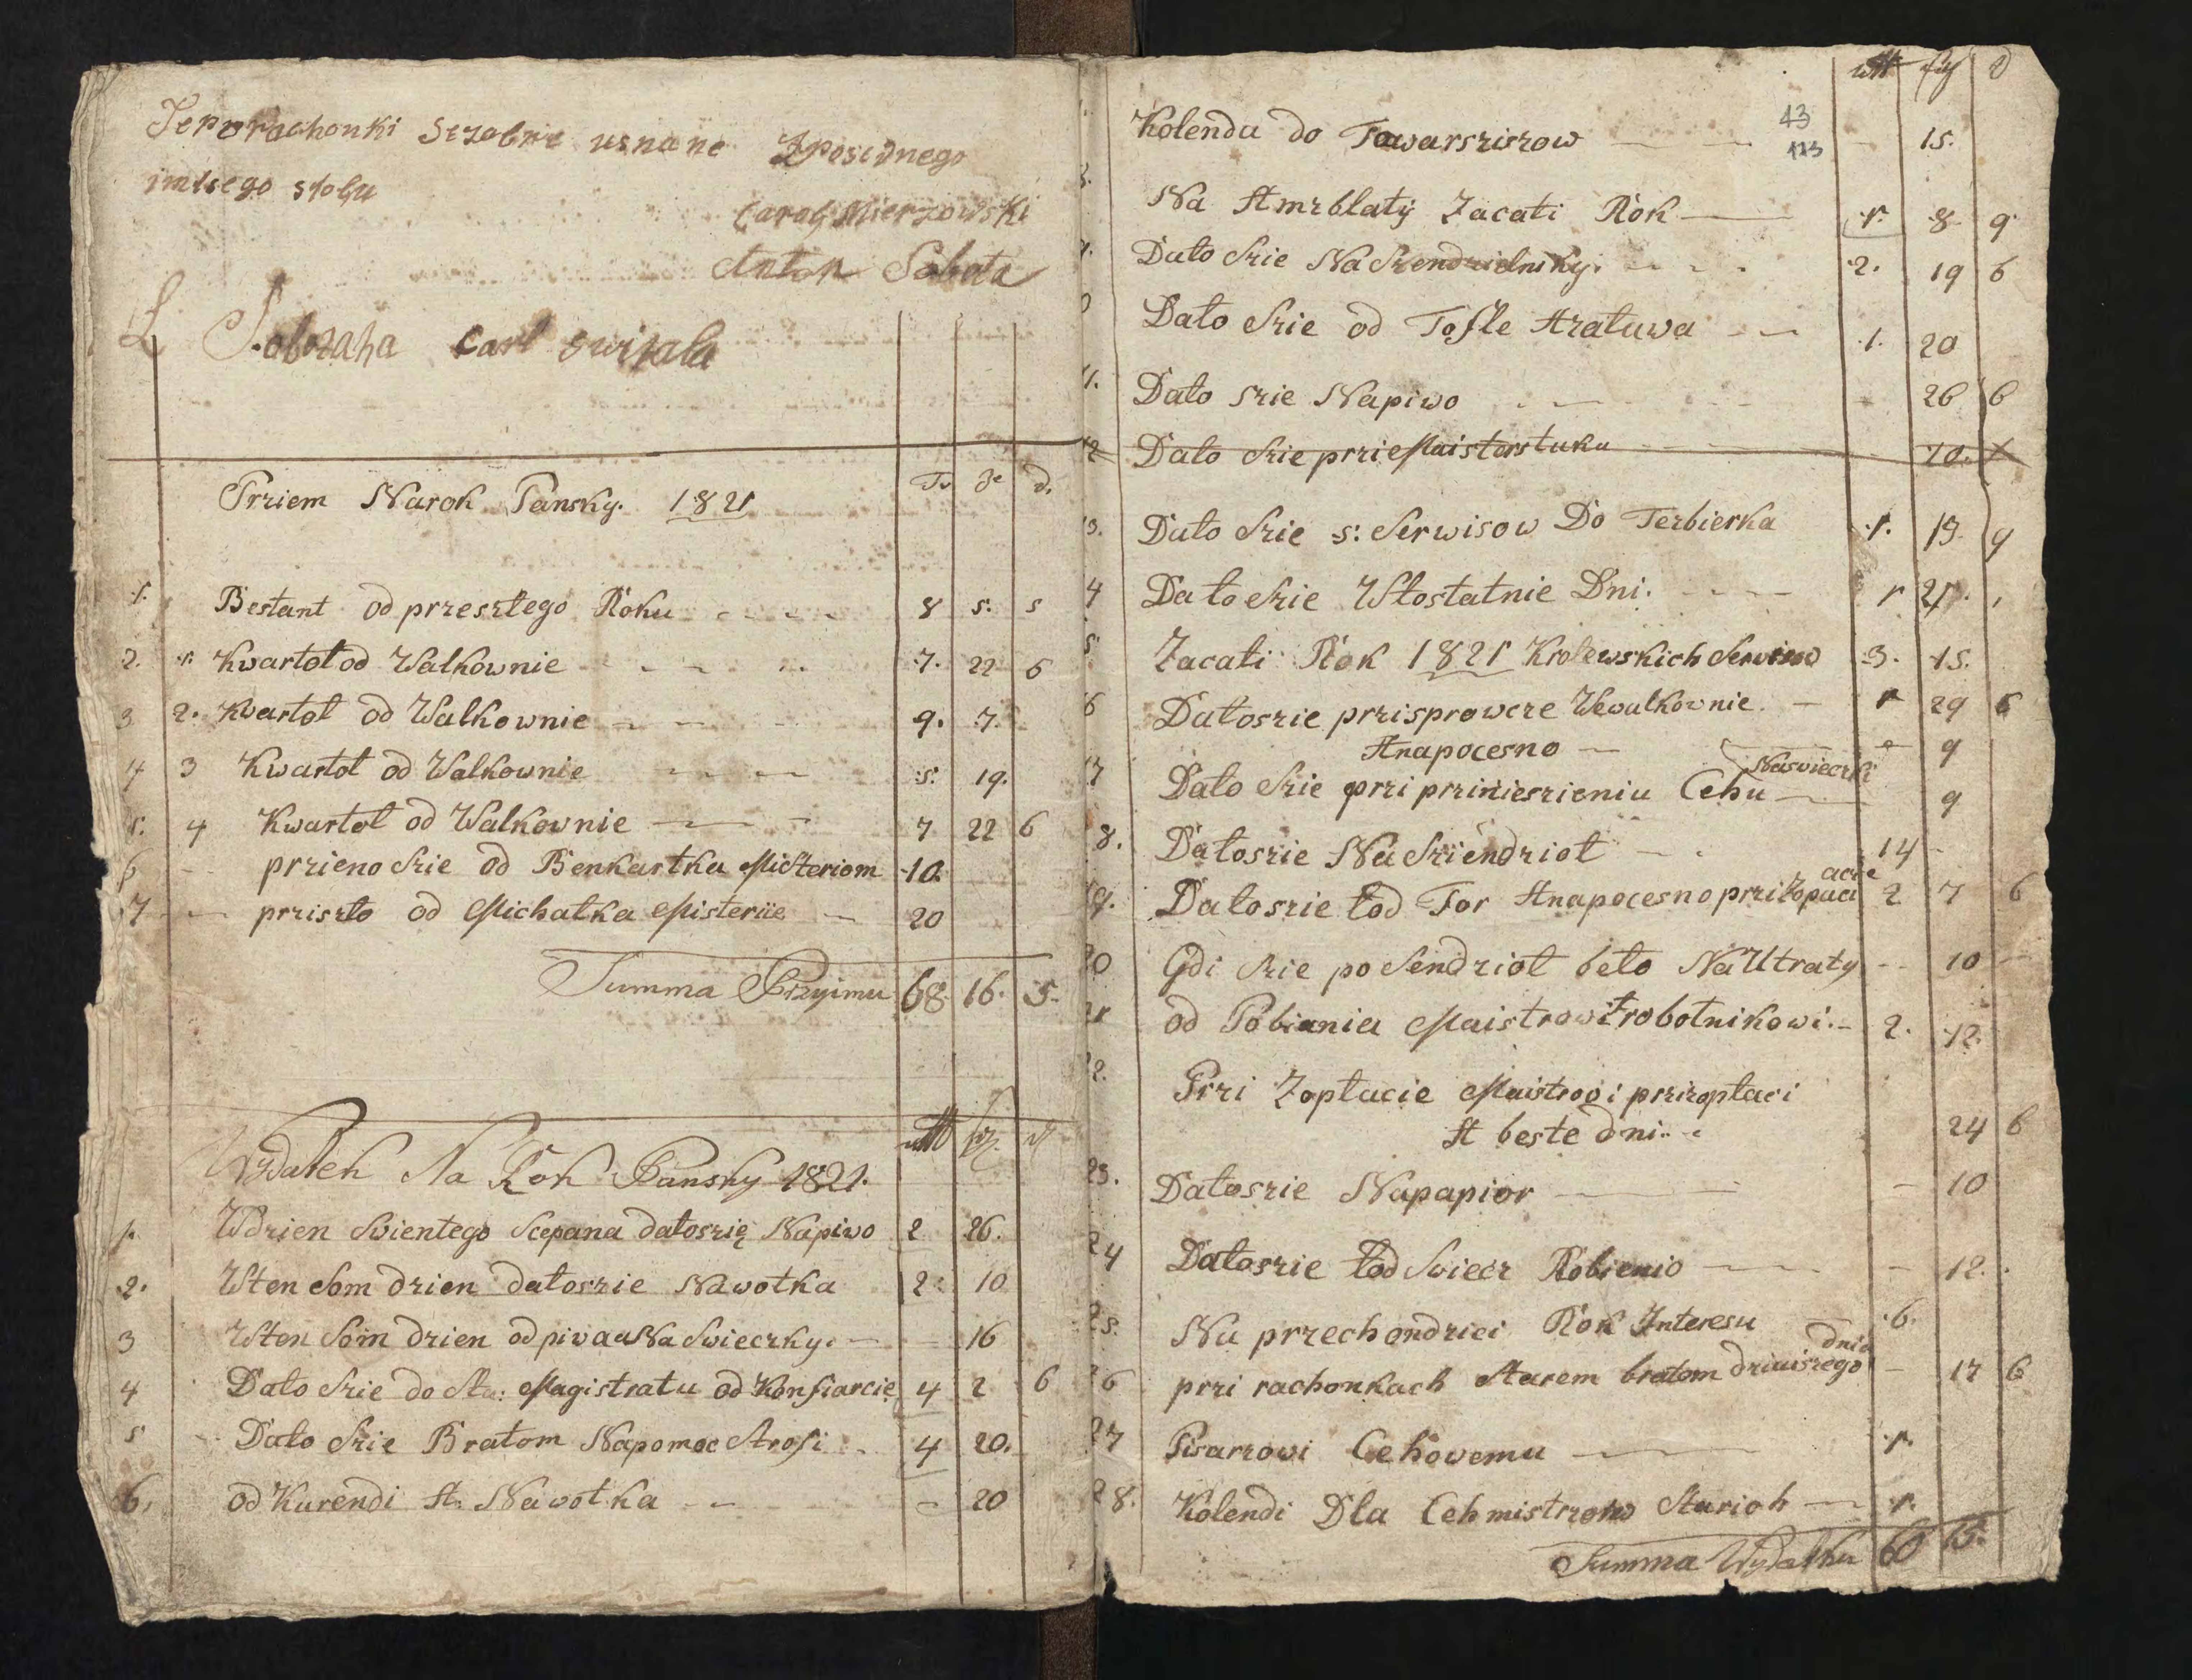 Te porachonki uznane Zposidnego
imisego stołu
Caroly Mierzowski
Anton Sobota
Carl Swirala
Przriem Narok Pansky. 1821
Bestant od przesrłego Roku 8 5. 5
2. 1. Kwartoł od Walkownie 7. 22 6
3 2. Kwartoł od Walkownie 9. 7.
4 3 Kwartoł od Walkownie 5. 19.
5. 4 Kwartoł od Walkownie 7 22 6
6 przieno Srie od Benkartka Misteriom 10.
7 prriszło od Michałka Misteriie 20
Summa Przyimu 68. 16. 5.
Wydatek Na Rok Pansky 1821.
1. Wdrien Swientego Scepana datosrię Napiwo 2 26.
2. Wten Som drien datosrie Nawotka 2 10
3 Wten Som drien od piwa Na Swiecrky. 16
4 Dało Srie do Magistratu od Konfiarcie 4 2 6
5 Dało Srie Bratom Napomoc Strofi 4 20.
6. od Kurendi St. Nawotka 20
43
113
Kolenda do Towarsrisrow 15.
Na Stmrblatÿ Zacati Rok 1. 8 9
Dało Srie Na Srendrielnsky. 2. 19 6
Dało Srie od Tofle Stratuwa 1. 20
11. Dało srie Napiwo 26 6
12 Dało Srie prrie Maisterstuku 10.
13. Dało Srie s: Serwisow Do Terbierka 1. 13. 9
4 Dało Srie Wtostatnie Dni. 1 21.
5 Zacati Rok 1821 Krolewskich Serwisow 3. 15.
6 Datosrie prrisprowcre Wewalkownie. 1 29 6
Stnapocesno 9
Naswiecrki
17 Dało Srie prri prriniesrieniu Cehu 9
8. Datosrie Na Sriendrioł 14
19. Datosrie tod Tor Stnapocesno prri 2 7 6
20 Gdi Srie po Sendrioł beło Na Utraty 10
21 od Pobiania Maistrowi robotnikowi. 2. 12.
22. Prri Zoptacie Maistrow i prrizoptaci
St beste dni. 24 6
23. Datosrie Napapior 10
24 Datosrie tod Swiecr Robienio 12.
25. Na przechondrici Rok Interesu 6.
dnia
26 prri rachonkach Starem bratom driaisrego 17 6
27 Pisarrowi Cehowemu 1.
28. Kolendi Dla Cehmistrrow Starich 1.
Summa Wydatku 60 15.